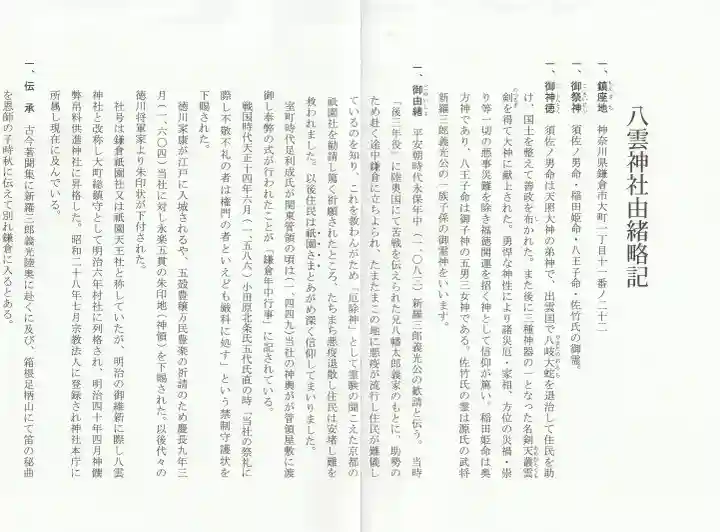 八雲神社由緒略記
一、鎮座地　神奈川県鎌倉市大町一丁目十一番ノ二十二
一、御祭神　須佐ノ男命・稲田姫命・八王子命・佐竹氏の御霊。
一、御神徳　須佐ノ男命は天照大神の弟神で、出雲国で八岐大蛇を退治して住民を助
け、国土を整えて善政を布かれた。また後に三種神器の一となった名剣天叢雲
剣を得て大神に献上された。勇悍な神性により諸災厄・家相、方位の災禍・祟
り等一切の悪事災難を除き福徳開運を招く神として信仰が篤い。稲田姫命は奥
方神であり、八王子命は御子神の五男三女神である。佐竹氏の霊は源氏の武将
新羅三郎義光公の一族子孫の御霊神をいいます。
一、御由緒　平安朝時代永保年中（一、〇八一）新羅三郎義光公の勧請と伝う。　当時
「後三年役」に陸奥国にて苦戦を伝えられた兄八幡太郎義家のもとに、助勢の
ため赴く途中鎌倉に立ちよられ、たまたまこの地に悪疫が流行し住民が難儀し
ているのを知り、これを救わんがため「厄除神」として霊験の聞こえた京都の
祇園社を勧請し篤く祈願されたところ、たちまち悪疫退散し住民は安堵し難を
救われました。以後住民は祇園さまとあがめ深く信仰してまいりました。
室町時代足利成氏が関東管領の頃は（一、四四九）当社の神輿が管領屋敷に渡
御し奉弊の式が行われたことが「鎌倉年中行事」に記されている。
戦国時代天正十四年六月（一、五八六）小田原北条氏五代氏直の時「当社の祭礼に
際し不敬不礼の者は権門の者といえども厳科に処す」という禁制守護状を
下賜された。
徳川家康が江戸に入城されるや、五穀豊穣万民豊楽の祈請のため慶長九年三
月（一、六〇四）当社に対し永楽五貫の朱印地（神領）を下賜された。以後代々の
徳川将軍家より朱印状が下付された。
社号は鎌倉祇園社又は祇園天王社と称していたが、明治の御維新に際し八雲
神社と改称し大町総鎮守として明治六年村社に列格され、明治四十年四月神饌
弊帛料供進神社に昇格した。昭和二十八年七月宗教法人に登録され神社本庁に
所属し現在に及んでいる。
一、伝　承　古今著聞集に新羅三郎義光陸奥に赴くに及び、箱根足柄山にて笛の秘曲
を恩師の子時秋に伝えて別れ鎌倉に入るとある。